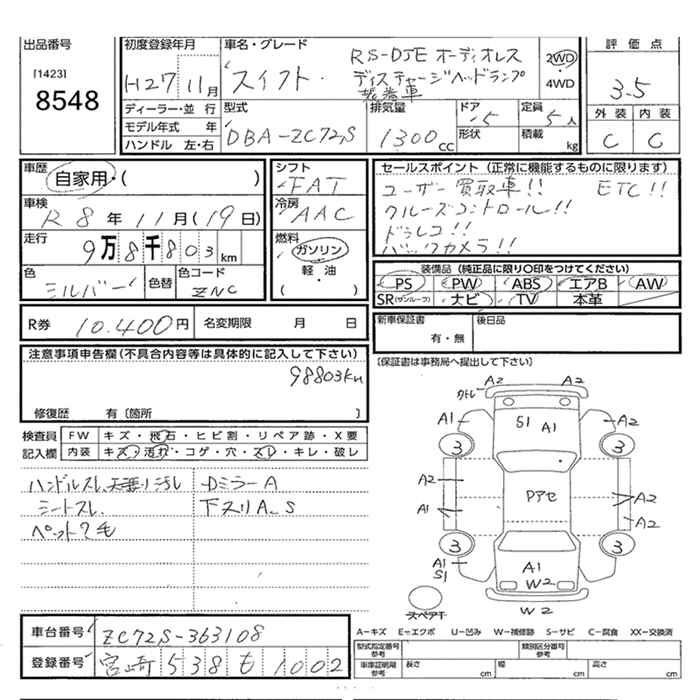 出品番号
[1423]
8548
初度登録年月
H27 11月
車名・グレード
RS-DJE オーディオレス
スイフト・ ディスチャージヘッドランプ
装着車
2WD
・
4WD
評価点
3.5
外装 内装
C C
ディーラー・並行
モデル年式 年
ハンドル 左・右
型式
DBA-ZC72S
排気量
1300cc
ドア
5
形状
定員
5人
積載
kg
車歴
自家用・( )
車検
R8年11月(19日)
走行
9万8千803km
色
シルバー
色替
色コード
ZNC
シフト
FAT
冷房
AAC
燃料
ガソリン
軽・油
( )
セールスポイント(正常に機能するものに限ります)
ユーザー買取車!! ETC!!
クルーズコントロール!!
ドラレコ!!
バックカメラ!!
装備品(純正品に限り○印をつけてください)
PS PW ABS エアB AW
SR(サンルーフ) ナビ TV 本革
R券 10.400円 名変期限 月 日
新車保証書
有・無
後日品
(保証書は事務局へ提出して下さい)
注意事項申告欄(不具合内容等は具体的に記入して下さい)
98803km
修復歴 有〔箇所 〕
検査員
記入欄
FW キズ・飛石・ヒビ割・リペア跡・X要
内装 キズ・汚れ・コゲ・穴・スレ・キレ・破レ
ハンドルスレ、天張り汚れ
シートスレ
ペット?毛
Dミラー A
下ヌリA、S
A2
カトレ
A2
A1
S1 A1
A2
3
3
A2
A1
Pアセ
A2
A2
3
3
A1
S1
A1
W2
スペアT
W2
A-キズ E-エクボ U-凹み W-補修跡 S-サビ C-腐食 XX-交換済
車台番号 ZC72S-363108
登録番号 宮崎 538 も 1002
型式指定番号
参考
類別区分番号
参考
車庫証明用
参考
長さ cm
幅 cm
高さ cm